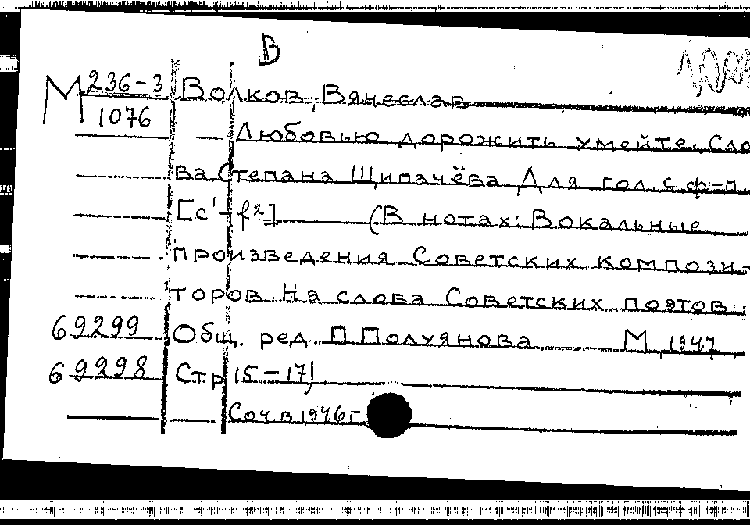 В
М 236-3 Волков, Вячеслав
1076 Любовью дорожить умейте. Сло
ва Степана Щипачёва Для гол. с ф-п.
[c¹-f²] (В нотах: Вокальные
произведения Советских компози-
торов на слова Советских поэтов.
69299 Общ. ред. П. Полуянова М, 1947
69298 Стр 15-17)
Соч в 1946 г.